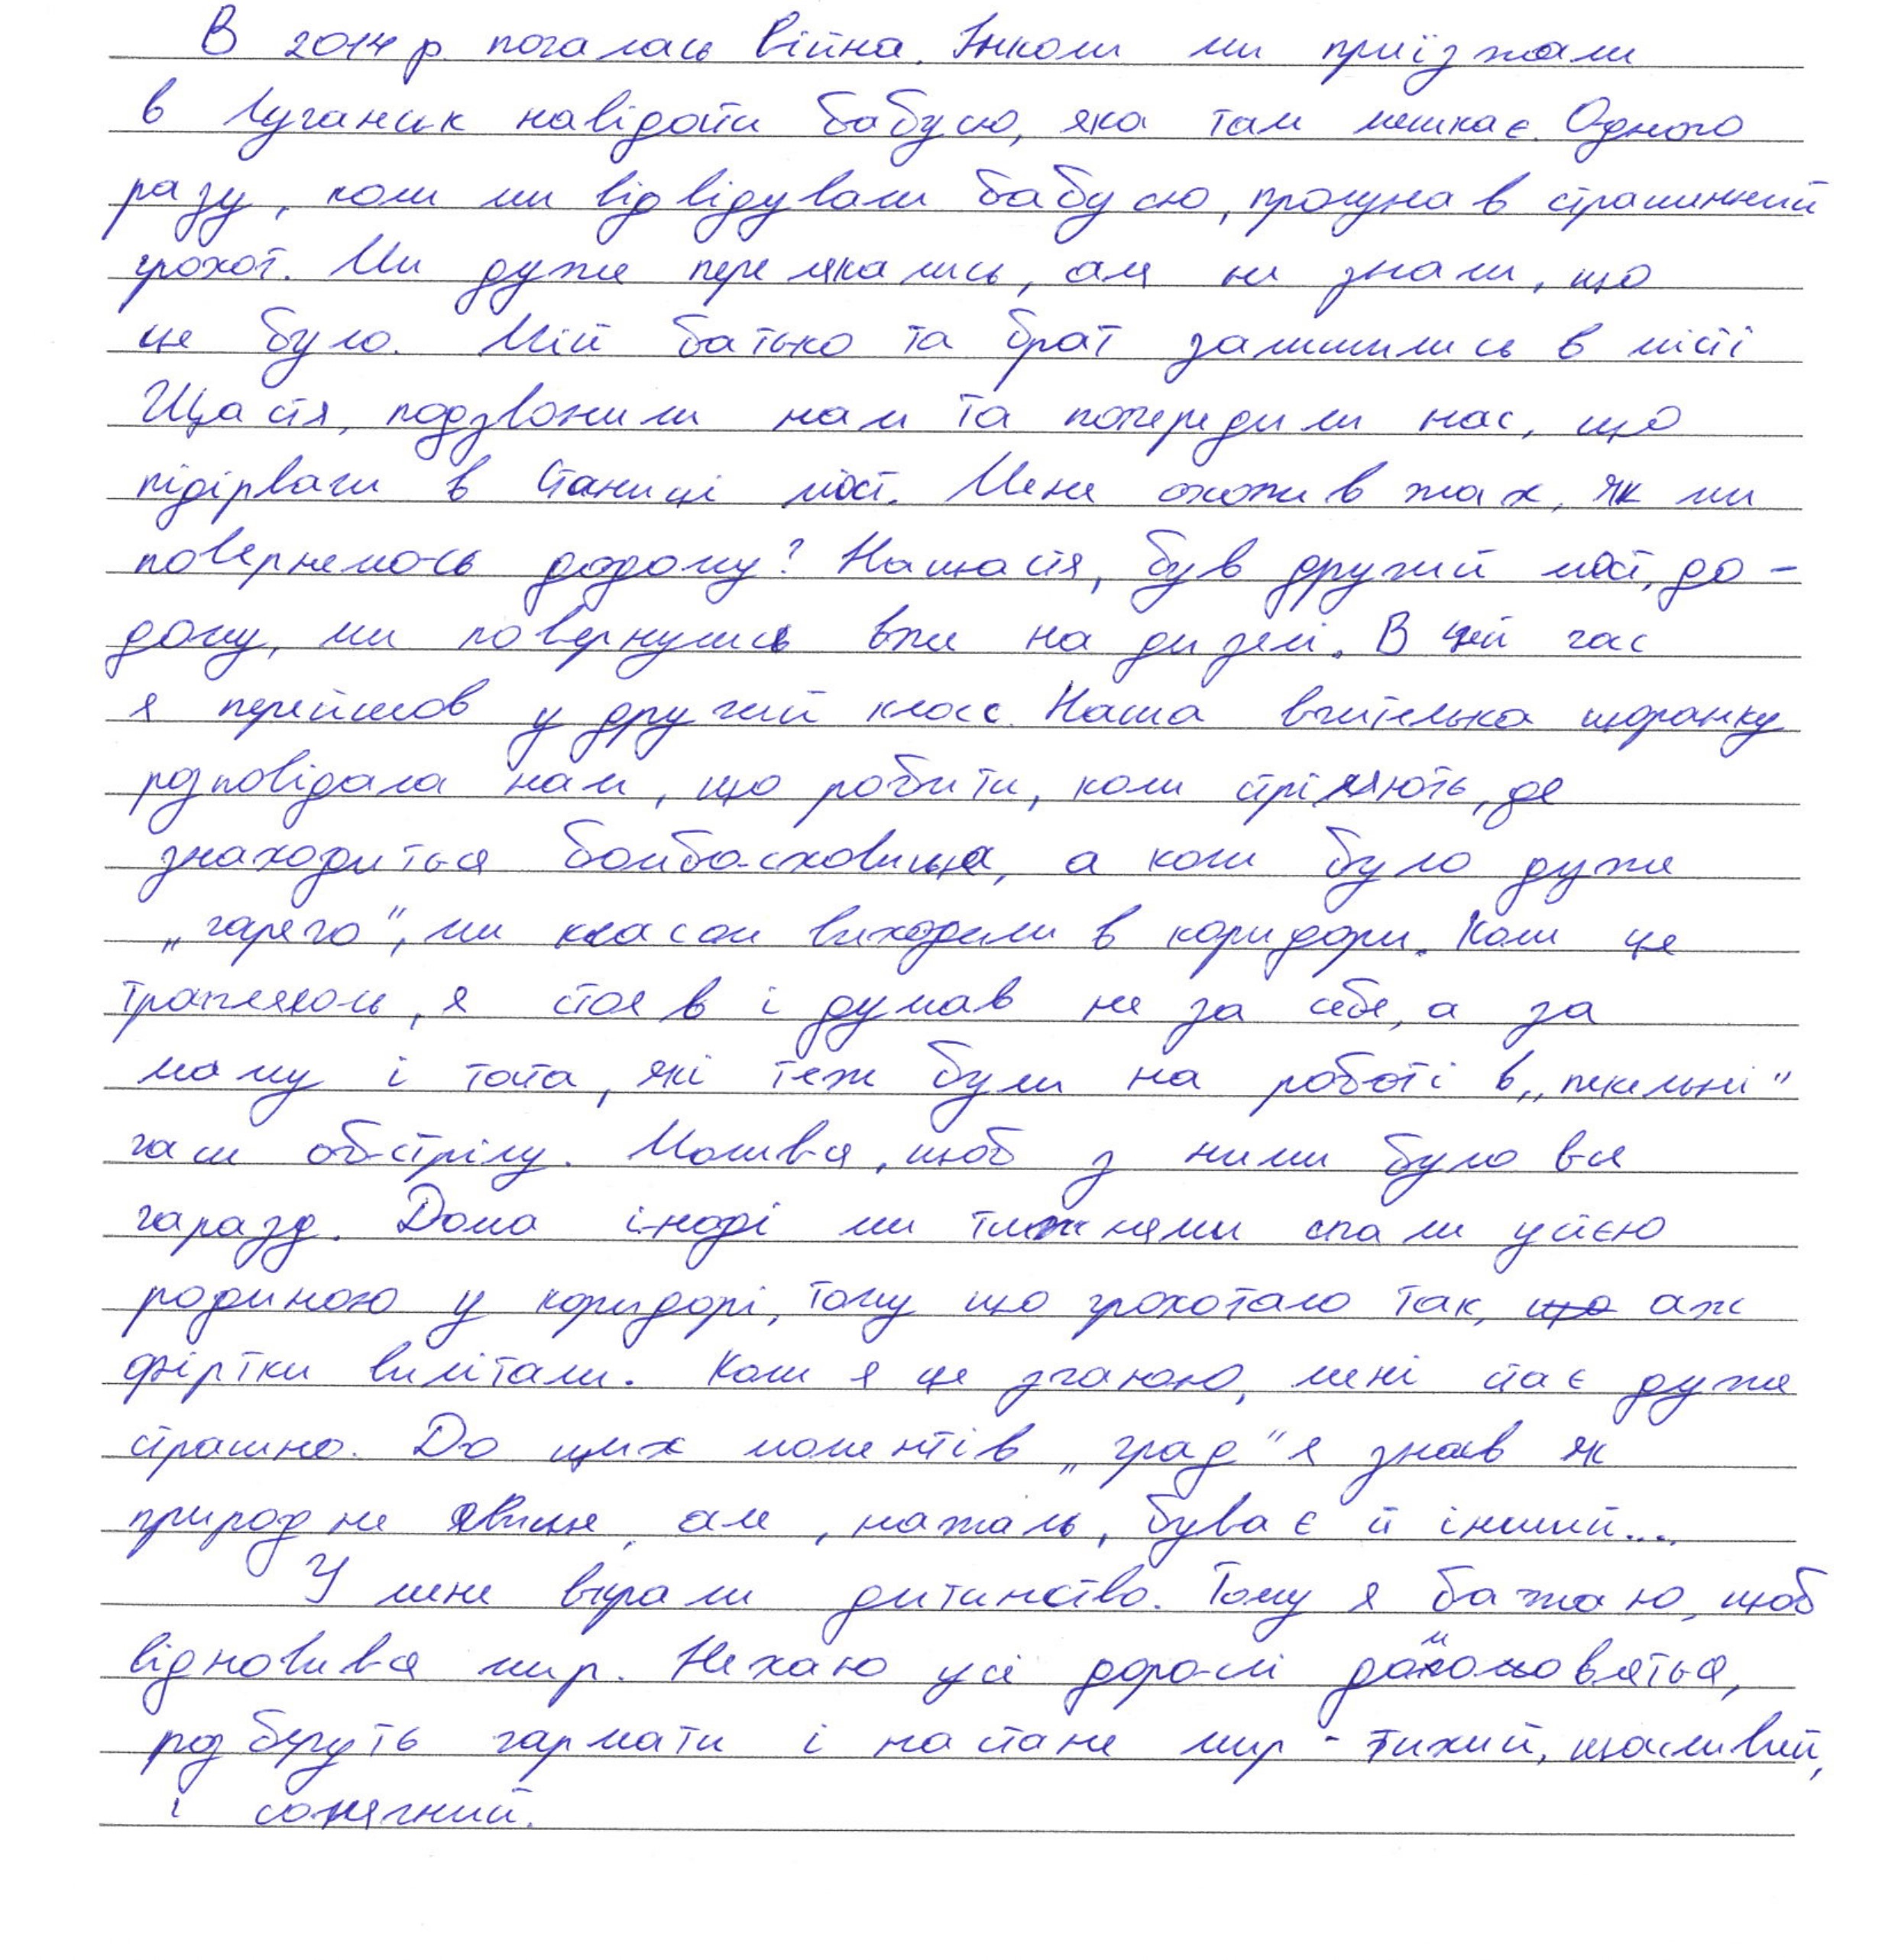 В 2014 р. почалась війна. Інколи ми приїзжали
в Луганськ навідати бабусю, яка там мешкає. Одного
разу, коли ми відвідували бабусю, пролунав страшинний
грохот. Ми дуже перелякались, але не знали, що
це було. Мій батько та брат залишились в місті
Щастя, подзвонили нам та попередили нас, що
підірвали в Станиці міст. Мене охопив жах, як ми
повернемось додому? Нащастя, був другий міст, до-
дому, ми повернулись вже на дизелі. В цей час
я перейшов у другий класс. Наша вчителька щоранку
розповідала нам, що робити, коли стріляють, де
знаходиться бомбосховище, а коли було дуже
„гаряче", ми класом виходили в коридори. Коли це
траплялось, я стояв і думав не за себе, а за
маму і тата, які теж були на роботі в „пекельні"
часи обстрілу. Молився, щоб з ними було все
гаразд. Дома іноді ми тижнями спали усією
родиною у коридорі, тому що грохотало так, що аж
фіртки вилітали. Коли я це згадую, мені стає дуже
страшно. До цих моментів „град" я знав як
природне явище, але, нажаль, буває й інший...
У мене вкрали дитинство. Тому я бажаю, щоб
відновився мир. Нехаю усі дорослі домовляться,
розберуть гармати і настане мир - тихий, щасливий,
і сонячний.